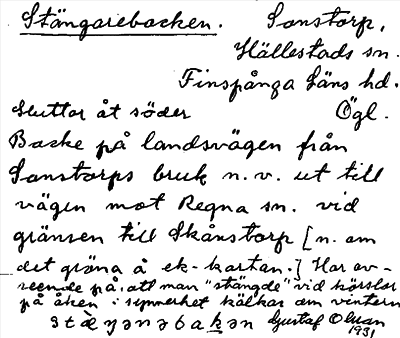 Stångarebacken. Sonstorp,
Hällestads sn.
Finspånga Läns hd.
Sluttar åt söder Ögl.
Backe på landsvägen från
Sonstorps bruk n.v. ut till
vägen mot Regna sn. vid
gränsen till Skånstorp [n. om
det gröna å ek-kartan.] Har av-
seende på, att man "stängde" vid körslor
på åken i synnerhet kälkar om vintern
Gustaf Olsson
1931